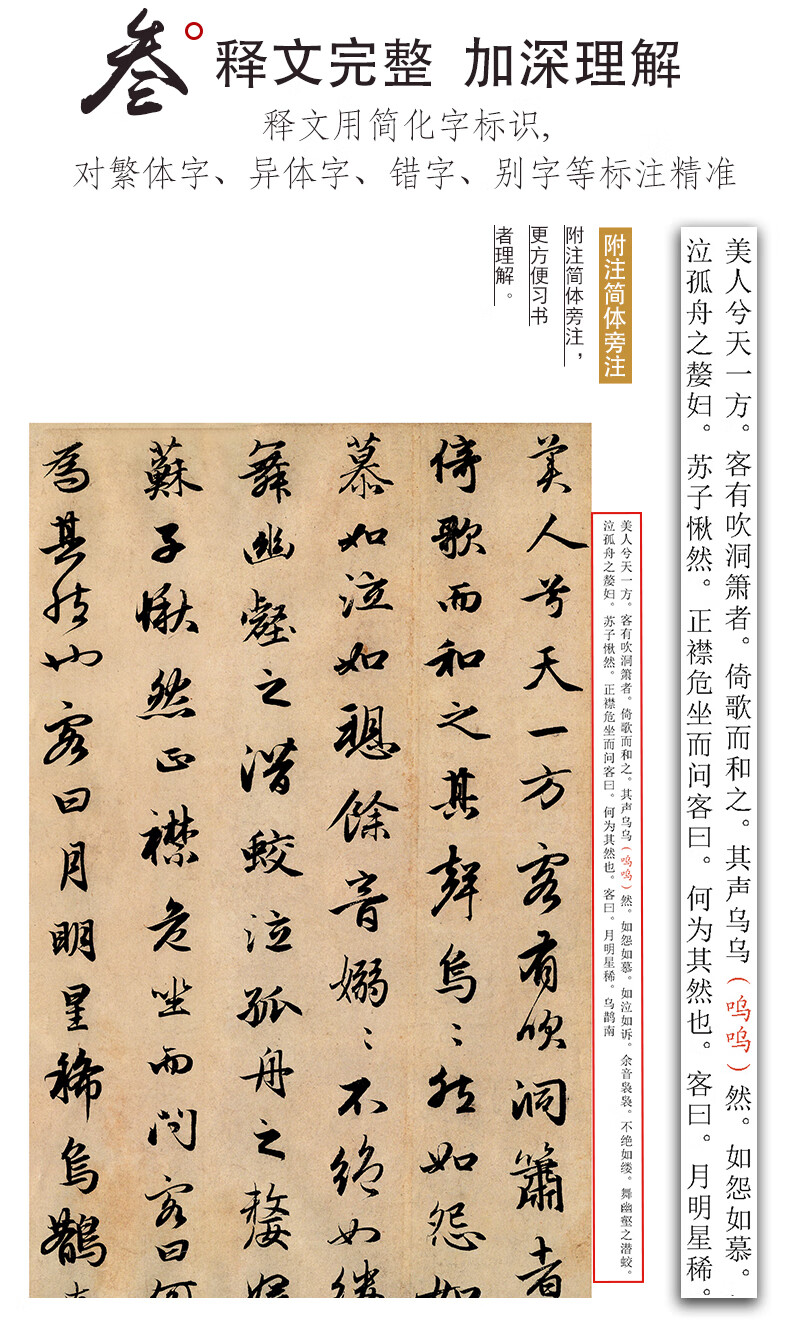 叁
释文完整 加深理解
释文用简化字标识,
对繁体字、异体字、错字、别字等标注精准
美人兮天一方。客有吹洞箫者。倚歌而和之。其声乌乌（呜呜）然。如怨如慕。
泣孤舟之嫠妇。苏子愀然。正襟危坐而问客曰。何为其然也。客曰。月明星稀。
附注简体旁注
附注简体旁注，
更方便习书
者理解。
美人兮天一方。客有吹洞箫者。倚歌而和之。其声乌乌（呜呜）然。如怨如慕。如泣如诉。余音袅袅。不绝如缕。舞幽壑之潜蛟。
泣孤舟之嫠妇。苏子愀然。正襟危坐而问客曰。何为其然也。客曰。月明星稀。乌鹊南
美人兮天一方客有吹洞簫者
倚歌而和之其聲烏〻然如怨如
慕如泣如愬餘音嫋〻不絕如縷
舞幽壑之潛蛟泣孤舟之嫠婦
蘇子愀然正襟危坐而問客曰何
為其然也客曰月明星稀烏鵲